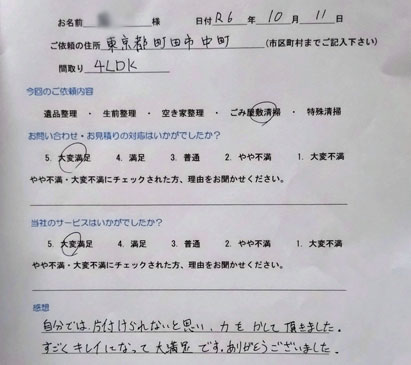 お名前 様 日付 R6 年 10 月 11 日
ご依頼の住所 東京都町田市中町 (市区町村までご記入下さい)
間取り 4LDK
今回のご依頼内容
遺品整理 ・ 生前整理 ・ 空き家整理 ・ ごみ屋敷清掃 ・ 特殊清掃
お問い合わせ・お見積りの対応はいかがでしたか?
5. 大変満足 4. 満足 3. 普通 2. やや不満 1. 大変不満
やや不満・大変不満にチェックされた方、理由をお聞かせください。
当社のサービスはいかがでしたか?
5. 大変満足 4. 満足 3. 普通 2. やや不満 1. 大変不満
やや不満・大変不満にチェックされた方、理由をお聞かせください。
感想
自分では片付けられないと思い、力をかして頂きました。
すごくキレイになって大満足です。ありがとうございました。